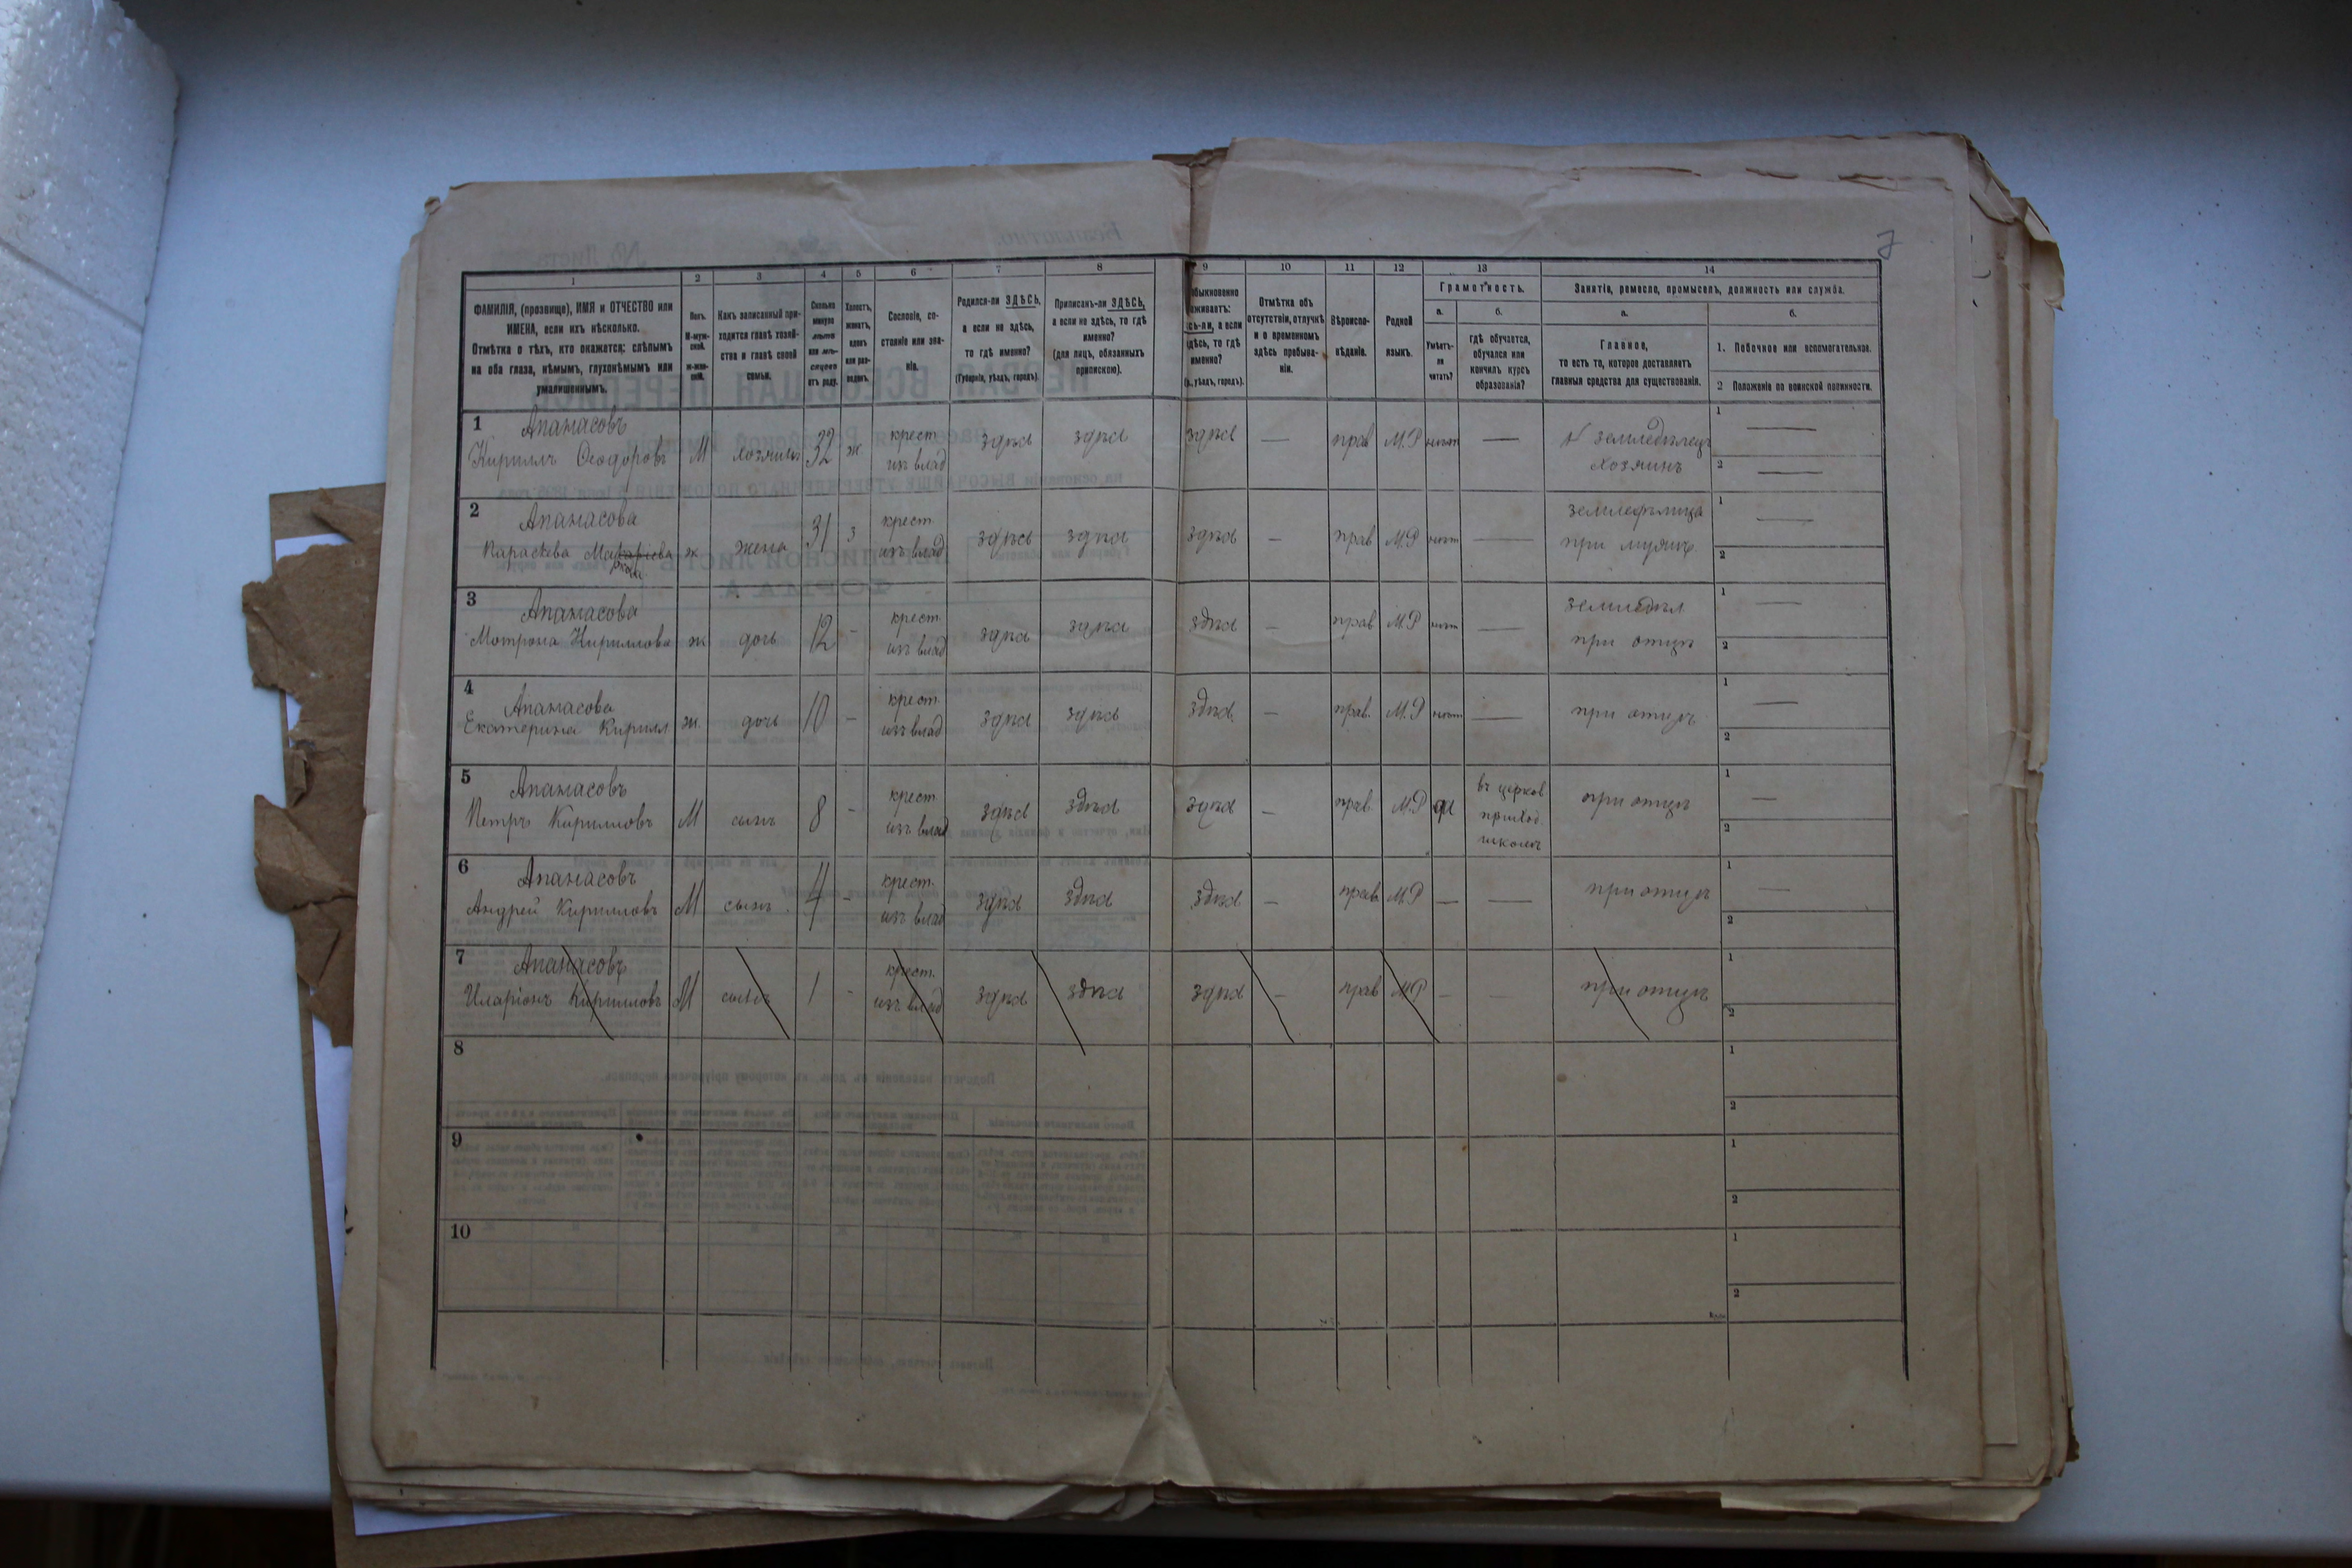 7
1 2 3 4 5 6 7 8 9 10 11 12 13 14
ФАМИЛІЯ, (прозвище), ИМЯ и ОТЧЕСТВО или
ИМЕНА, если ихъ нѣсколько.
Отмѣтка о тѣхъ, кто окажется: слѣпымъ
на оба глаза, нѣмымъ, глухонѣмымъ или
умалишеннымъ.
Полъ.
М-муж-
ской.
ж-жен-
скій.
Какъ записанный при-
ходится главѣ хозяй-
ства и главѣ своей
семьи.
Сколько
минуло
лѣтъ
или мѣ-
сяцевъ
отъ роду.
Холостъ,
женатъ,
вдовъ
или раз-
веденъ.
Сословіе, со-
стояніе или зва-
ніе.
Родился-ли ЗДѢСЬ,
а если не здѣсь,
то гдѣ именно?
(Губернія, уѣздъ, городъ).
Приписанъ-ли ЗДѢСЬ,
а если не здѣсь, то гдѣ
именно?
(для лицъ, обязанныхъ
припискою).
быкновенно
живаетъ:
сь-ли, а если
здѣсь, то гдѣ
именно?
уѣздъ, городъ).
Отмѣтка объ
отсутствіи, отлучкѣ
и о временномъ
здѣсь пребыва-
ніи.
Вѣроиспо-
вѣданіе.
Родной
языкъ.
Грамотность.
а.
Умѣетъ-
ли
читать?
б.
гдѣ обучается,
обучался или
кончилъ курсъ
образованія?
Занятіе, ремесло, промыселъ, должность или служба.
а.
Главное,
то есть то, которое доставляетъ
главныя средства для существованія.
б.
1. Побочное или вспомогательное.
2 Положеніе по воинской повинности.
1 Апанасовъ
Кириллъ Ѳеодоровъ М хозяинъ 32 ж крест. изъ влад здѣсь здѣсь здѣсь — прав М.Р нѣтъ — земледѣлецъ хозяинъ 1 — 2 —
2 Апанасова
Параскева ж жена 31 з крест. изъ влад здѣсь здѣсь здѣсь — прав М.Р нѣтъ — при мужѣ 1 — 2
3 Апанасова
Мотрона Кириллова ж дочь 12 - крест. изъ влад здѣсь здѣсь здѣсь — прав М.Р нѣтъ — земледѣл при отцѣ 1 — 2
4 Апанасова
Екатерина Кирилл ж дочь 10 - крест. изъ влад здѣсь здѣсь здѣсь — прав. М.Р нѣтъ — при отцѣ 1 — 2
5 Апанасовъ
Петръ Кирилловъ М сынъ 8 - крест. изъ влад здѣсь здѣсь здѣсь — прав. М.Р да въ церков приход. школѣ при отцѣ 1 — 2
6 Апанасовъ
Андрей Кирилловъ М сынъ 4 - крест. изъ влад здѣсь здѣсь здѣсь — прав М.Р — — при отцѣ 1 — 2
7 Апанасовъ
Иларіонъ Кирилловъ М сынъ 1 - крест. изъ влад здѣсь здѣсь здѣсь — прав М.Р — — при отцѣ 1 2
8 1 2
9 1 2
10 1 2